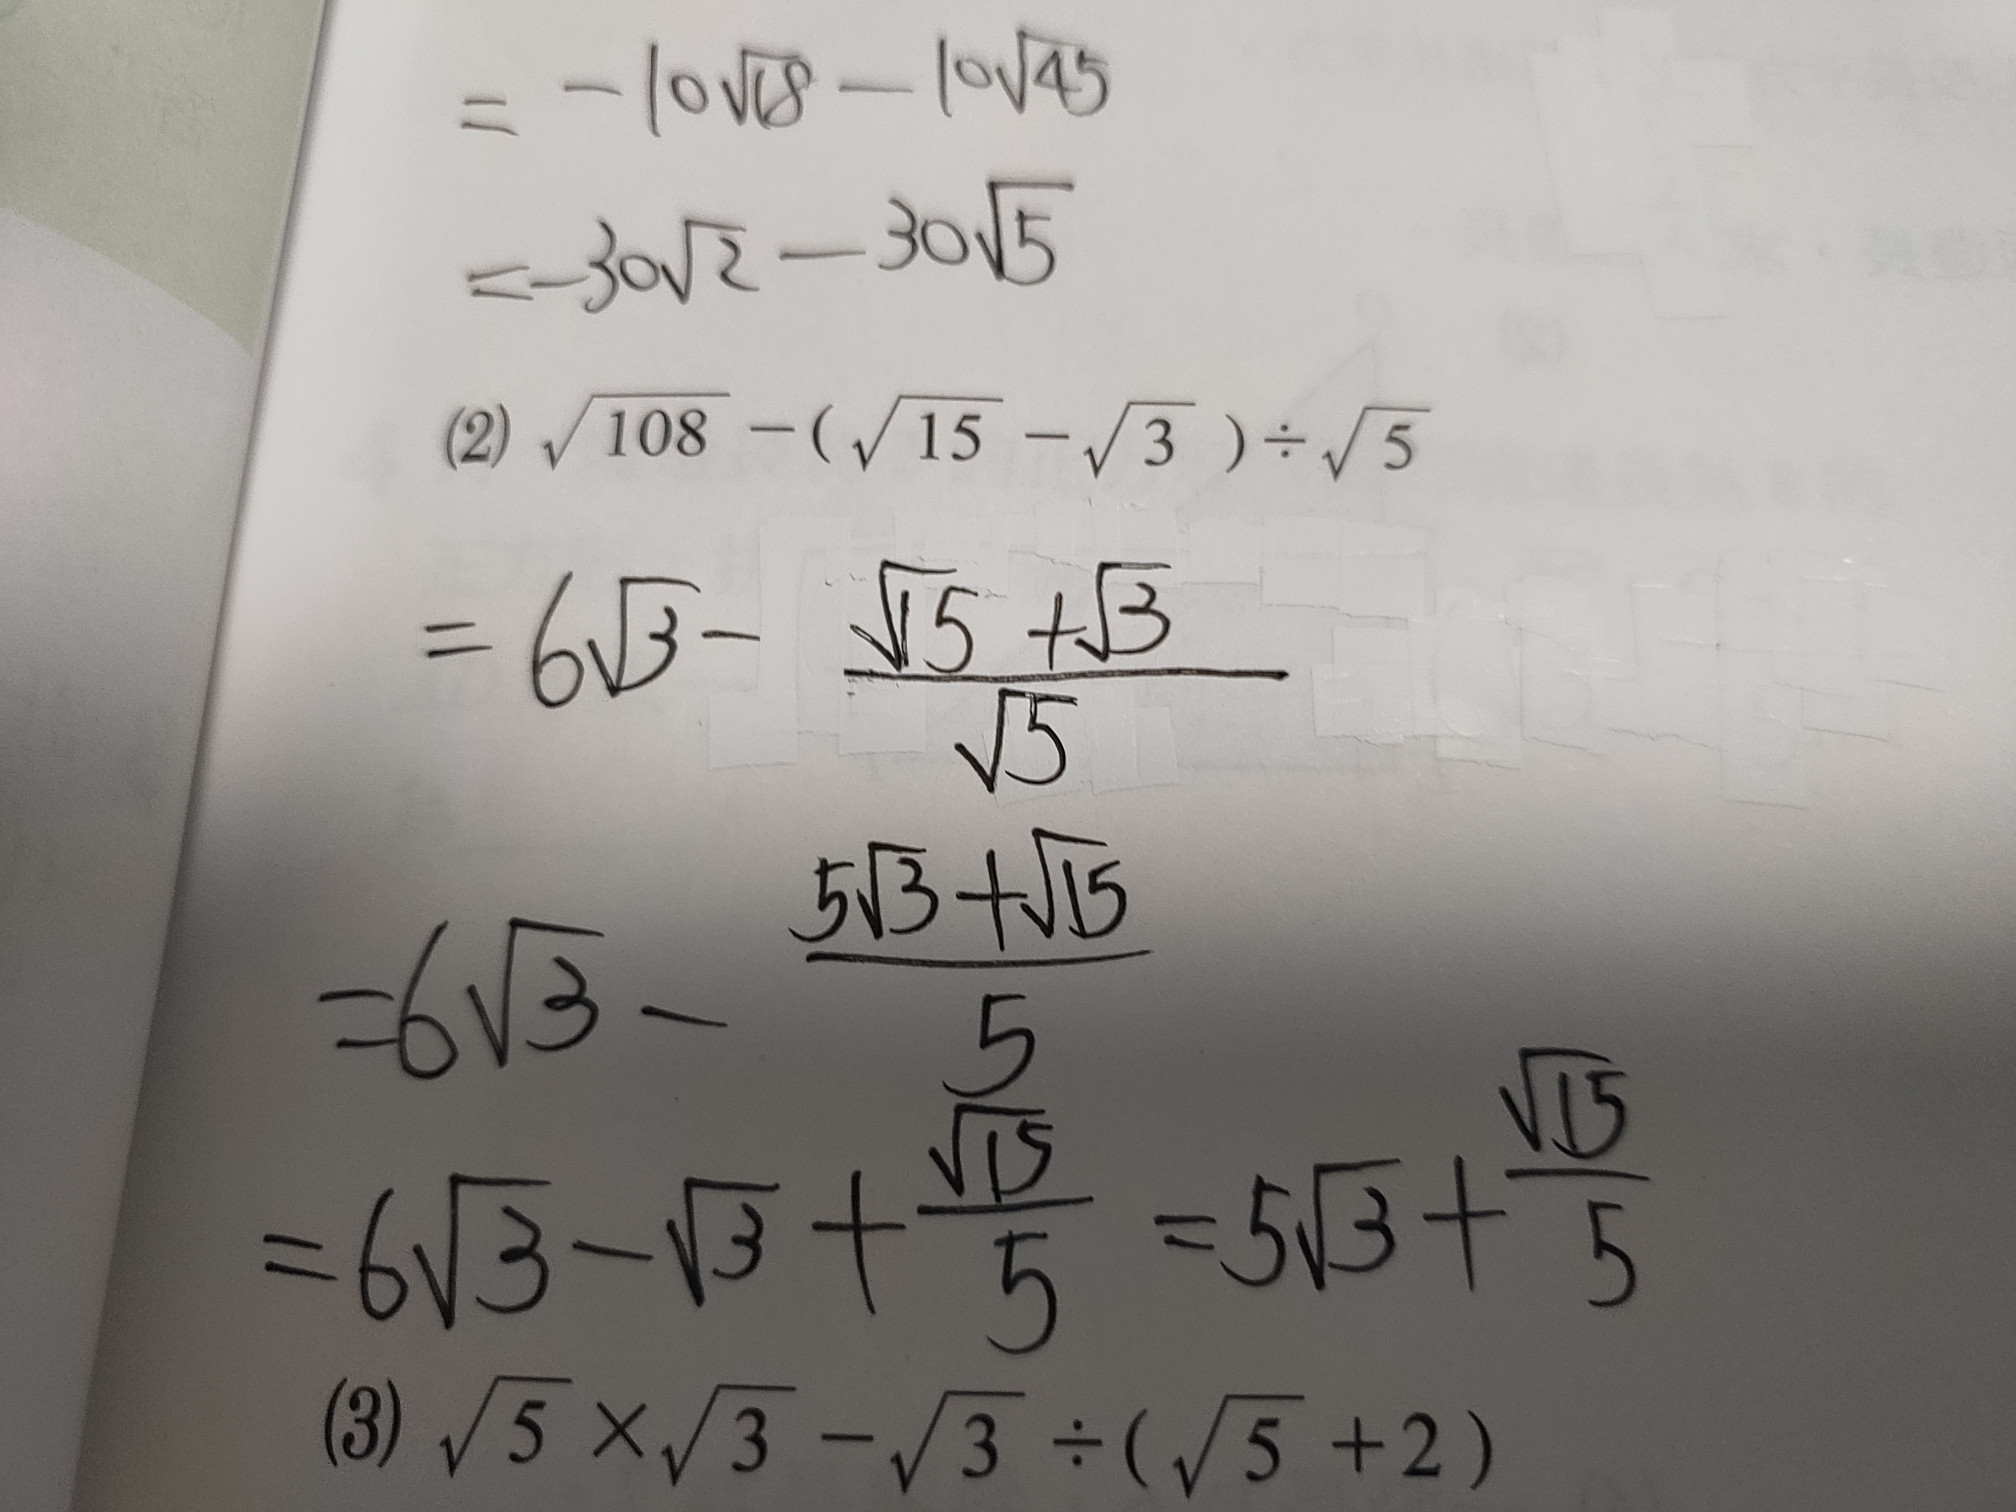 = -10√18 - 10√45
= -30√2 - 30√5
(2) √108 - (√15 - √3) ÷ √5
= 6√3 - (√15 + √3)/√5
= 6√3 - (5√3 + √15)/5
= 6√3 - √3 + √15/5 = 5√3 + √15/5
(3) √5 × √3 - √3 ÷ (√5 + 2)